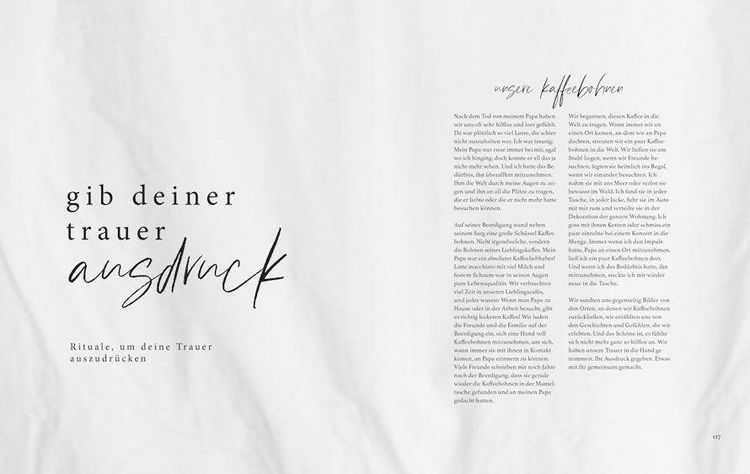 gib deiner
trauer
ausdruck
Rituale, um deine Trauer
auszudrücken
unsere kaffeebohnen
Nach dem Tod von meinem Papa haben
wir uns oft sehr hilflos und leer gefühlt.
Da war plötzlich so viel Leere, die schier
nicht auszuhalten war. Ich war traurig:
Mein Papa war zwar immer bei mir, egal
wo ich hinging, doch konnte er all das ja
nicht mehr sehen. Und ich hatte das Be-
dürfnis, ihn überallhin mitzunehmen.
Ihm die Welt durch meine Augen zu zei-
gen und ihn an all die Plätze zu tragen,
die er liebte oder die er nicht mehr hatte
besuchen können.
Auf seiner Beerdigung stand neben
seinem Sarg eine große Schüssel Kaffee-
bohnen. Nicht irgendwelche, sondern
die Bohnen seines Lieblingskaffes. Mein
Papa war ein absoluter Kaffeeliebhaber!
Latte macchiato mit viel Milch und
festem Schaum war in seinen Augen
pure Lebensqualität. Wir verbrachten
viel Zeit in unseren Lieblingscafés,
und jeder wusste: Wenn man Papa zu
Hause oder in der Arbeit besucht, gibt
es richtig leckeren Kaffee! Wir luden
die Freunde und die Familie auf der
Beerdigung ein, sich eine Hand voll
Kaffeebohnen mitzunehmen, um sich,
wann immer sie mit ihnen in Kontakt
kamen, an Papa erinnern zu können.
Viele Freunde schrieben mir noch Jahre
nach der Beerdigung, dass sie gerade
wieder die Kaffeebohnen in der Mantel-
tasche gefunden und an meinen Papa
gedacht hatten.
Wir begannen, diesen Kaffee in die
Welt zu tragen. Wann immer wir an
einen Ort kamen, an dem wir an Papa
dachten, streuten wir ein paar Kaffee-
bohnen in die Welt. Wir ließen sie am
Stuhl liegen, wenn wir Freunde be-
suchten, legten sie heimlich ins Regal,
wenn wir einander besuchten. Ich
nahm sie mit ans Meer oder verlor sie
bewusst im Wald. Ich fand sie in jeder
Tasche, in jeder Jacke, fuhr sie im Auto
mit mir rum und verteilte sie in der
Dekoration der ganzen Wohnung. Ich
goss mit ihnen Kerzen oder schmiss ein
paar einzelne bei einem Konzert in die
Menge. Immer wenn ich den Impuls
hatte, Papa an einen Ort mitzunehmen,
ließ ich ein paar Kaffeebohnen dort.
Und wenn ich das Bedürfnis hatte, ihn
mitzunehmen, steckte ich mir wieder
neue in die Tasche.
Wir sandten uns gegenseitig Bilder von
den Orten, an denen wir Kaffeebohnen
zurückließen, wir erzählten uns von
den Geschichten und Gefühlen, die wir
erlebten. Und das Schöne ist, es fühlte
sich nicht mehr ganz so hilflos an. Wir
haben unsere Trauer in die Hand ge-
nommen. Ihr Ausdruck gegeben. Etwas
mit ihr gemeinsam gemacht.
117